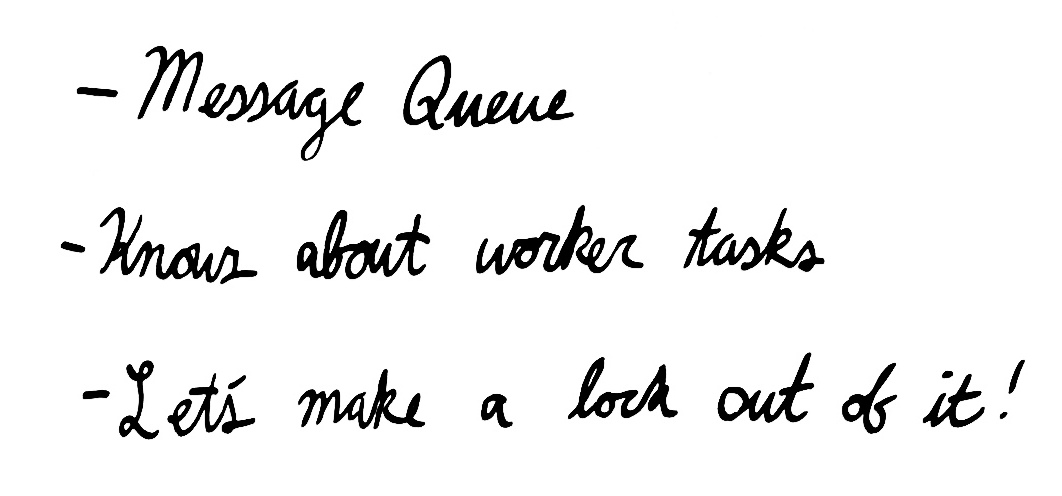 - Message Queue
- Knows about worker tasks
- Let's make a lock out of it!